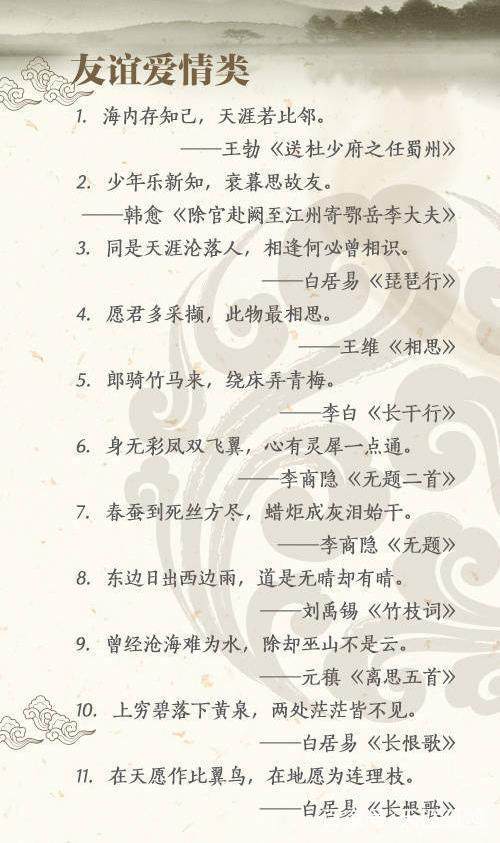 友谊爱情类
1. 海内存知己，天涯若比邻。
——王勃《送杜少府之任蜀州》
2. 少年乐新知，衰暮思故友。
——韩愈《除官赴阙至江州寄鄂岳李大夫》
3. 同是天涯沦落人，相逢何必曾相识。
——白居易《琵琶行》
4. 愿君多采撷，此物最相思。
——王维《相思》
5. 郎骑竹马来，绕床弄青梅。
——李白《长干行》
6. 身无彩凤双飞翼，心有灵犀一点通。
——李商隐《无题二首》
7. 春蚕到死丝方尽，蜡炬成灰泪始干。
——李商隐《无题》
8. 东边日出西边雨，道是无晴却有晴。
——刘禹锡《竹枝词》
9. 曾经沧海难为水，除却巫山不是云。
——元稹《离思五首》
10. 上穷碧落下黄泉，两处茫茫皆不见。
——白居易《长恨歌》
11. 在天愿作比翼鸟，在地愿为连理枝。
——白居易《长恨歌》